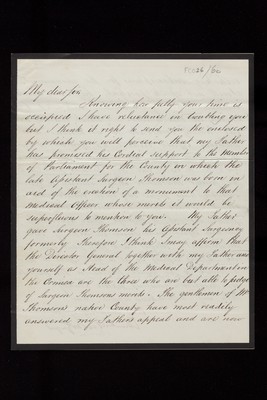 My dear Sir
Knowing how fully your time is
occupied I have reluctance in troubling you
but I think it right to send you the enclosed
by which you will perceive that my Father
has promised his Cordial support to the Member
of Parliament for the County in which the
late Assistant Surgeon Thomson was born in
aid of the erection of a monument to that
Medical Officer whose merits it would be
superfluous to mention to you. My Father
gave Surgeon Thomson his Assistant Surgeoncy
formerly therefore I think I may affirm that
the Director General together with my Father and
yourself as Head of the Medical Department in
the Crimea are the three who are best able to judge
of Surgeon Thomsons merits. The gentlemen of Mr
Thomsons native County have most readily
answered my Fathers appeal and are now